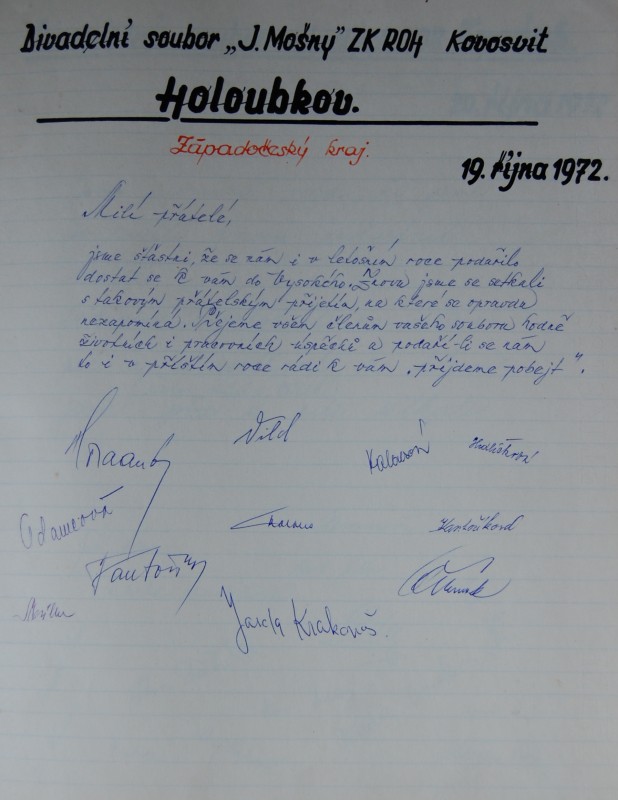 Divadelní soubor „J. Mošny" ZK ROH Kovosvit
Holoubkov.
Západočeský kraj.
19. října 1972.
Milí přátelé,
jsme šťastni, že se nám i v letošním roce podařilo
dostat se k vám do Vysokého. Znova jsme se setkali
s takovým přátelským přijetím, na které se opravdu
nezapomíná. Přejeme všem členům vašeho souboru hodně
životních i pracovních úspěchů a podaří-li se nám
to i v příštím roce rádi k vám „přijdeme pobejt".
Vild
Kalousová
Adamcová
Kantoříková
Jarda Krakonoš.